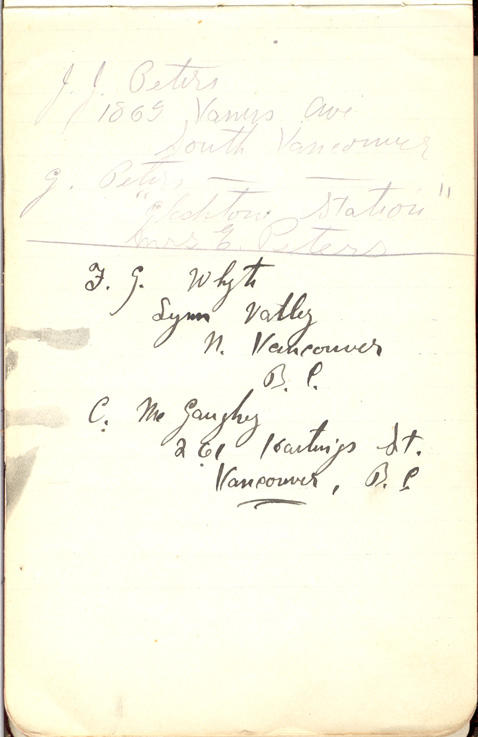 J. J. Peters
1869 Ave
South Vancouver
G. Peters
Station"
Mrs G. Peters
F. G. Whyte
Lynn Valley
N. Vancouver
B. C.
C. Mc Gaughey
261 Hastings St.
Vancouver, B. C